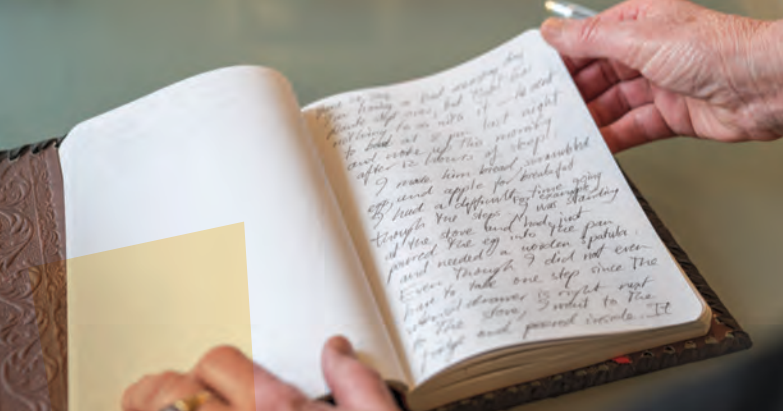 having a bad morning day
nothing to do with it — he went
to bed at 8 pm last night
and woke up this morning
after 12 hours of sleep!
I made him bread, scrambled
egg and apple for breakfast
I had a difficult time going
through the steps. For example,
I was standing
at the stove and had just
poured the egg into the pan
and needed a wooden spatula.
Even though I did not even
have to take one step since the
drawer is right next
to the stove, I went to the
fridge and peered inside. It